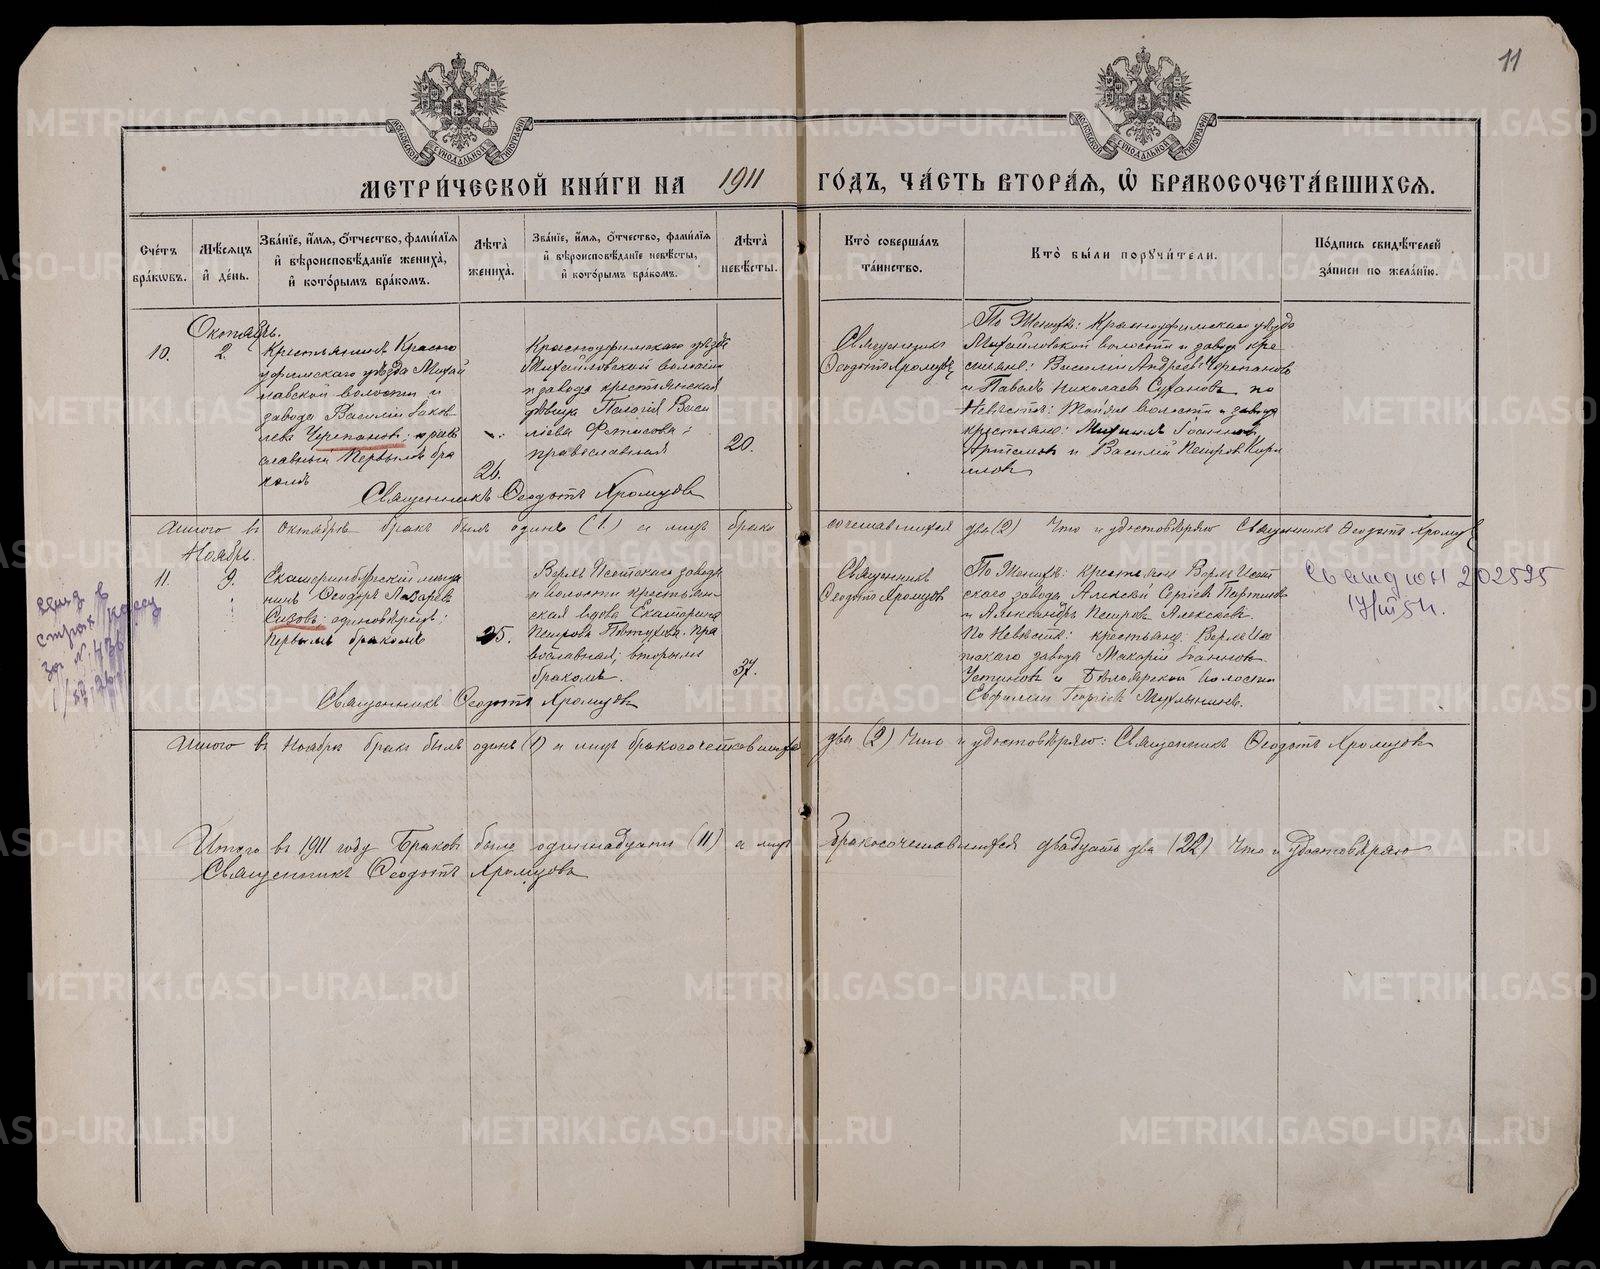 11
МОСКОВСКОЙ СѴНОДАЛЬНОЙ ТИПОГРАФІИ
МОСКОВСКОЙ СѴНОДАЛЬНОЙ ТИПОГРАФІИ
МЕТРИ́ЧЕСКОЙ КНИ́ГИ НА 1911 ГО́ДЪ, ЧА́СТЬ ВТОРА́Я, Ѡ БРАКОСОЧЕТА́ВШИХСЯ.
Сче́тъ бра́кѡвъ.
Мѣ́сяцъ и де́нь.
Зва́нїе, и́мя, ѻ́тчество, фами́лїя и вѣроисповѣ́данїе жениха̀, и кото́рымъ бра́комъ.
Лѣта̀ жениха̀.
Зва́нїе, и́мя, ѻ́тчество, фами́лїя и вѣроисповѣ́данїе невѣ́сты, и кото́рымъ бра́комъ.
Лѣта̀ невѣ́сты.
Кто̀ соверша́лъ та́инство.
Кто̀ бы́ли порꙋчи́тели.
По́дпись свидѣ́телей за́писи по жела́нїю.
Октябрь.
10.
2.
Крестьянинъ Красно
уфимскаго уѣзда Михай
ловской волости и
завода Василій Іаков
левъ Черепановъ; право
славный Первымъ бра
комъ
26.
Красноуфимскаго уѣзда
Михайловской волости
и завода крестьянская
дѣвица Васи
ліева Фетисова;
православная
20.
Священникъ
Ѳеодотъ Хромцовъ
По Женихѣ: Красноуфимскаго уѣзда
Михайловской волости и завода кре
стьяне: Василій Андреевъ Черепановъ
и Павелъ Николаевъ Сухановъ по
Невѣстѣ: Той же волости и завода
крестьяне: Михаилъ Іоанновъ
Артемовъ и Василій Петровъ Кири
лловъ
Священникъ Ѳеодотъ Хромцовъ
Итого въ Октябрѣ бракъ былъ одинъ (1) а лицъ брако
сочетавшихся два (2) Что и удостовѣряю Священникъ Ѳеодотъ Хромцовъ
Ноябрь.
11.
9.
Екатеринбургскій мѣща
нинъ Ѳеодоръ Лазаревъ
Сизовъ; единовѣрецъ;
Первымъ бракомъ
25.
Верхъ Исетскаго завода
и волости крестьян
ская вдова Екатерина
Петрова пра
вославная; вторымъ
бракомъ.
37.
Священникъ
Ѳеодотъ Хромцовъ
По Женихѣ: крестьяне Верхъ Исет
скаго завода Алексѣй Сергіевъ
и Александръ Петровъ Алексѣевъ.
По Невѣстѣ: крестьяне: Верхъ Исе
тскаго завода Макарій Іоанновъ
Устиновъ и Бѣлоярской волости
Евфимій Георгіевъ
202525
Священникъ Ѳеодотъ Хромцовъ
Итого въ Ноябрѣ бракъ былъ одинъ (1) а лицъ бракосочетавшихся
два (2) Что и удостовѣряю: Священникъ Ѳеодотъ Хромцовъ
Итого въ 1911 году Браковъ было одиннадцать (11) а лицъ
бракосочетавшихся двадцать два (22) Что и удостовѣряю
Священникъ Ѳеодотъ Хромцовъ
METRIKI.GASO-URAL.RU